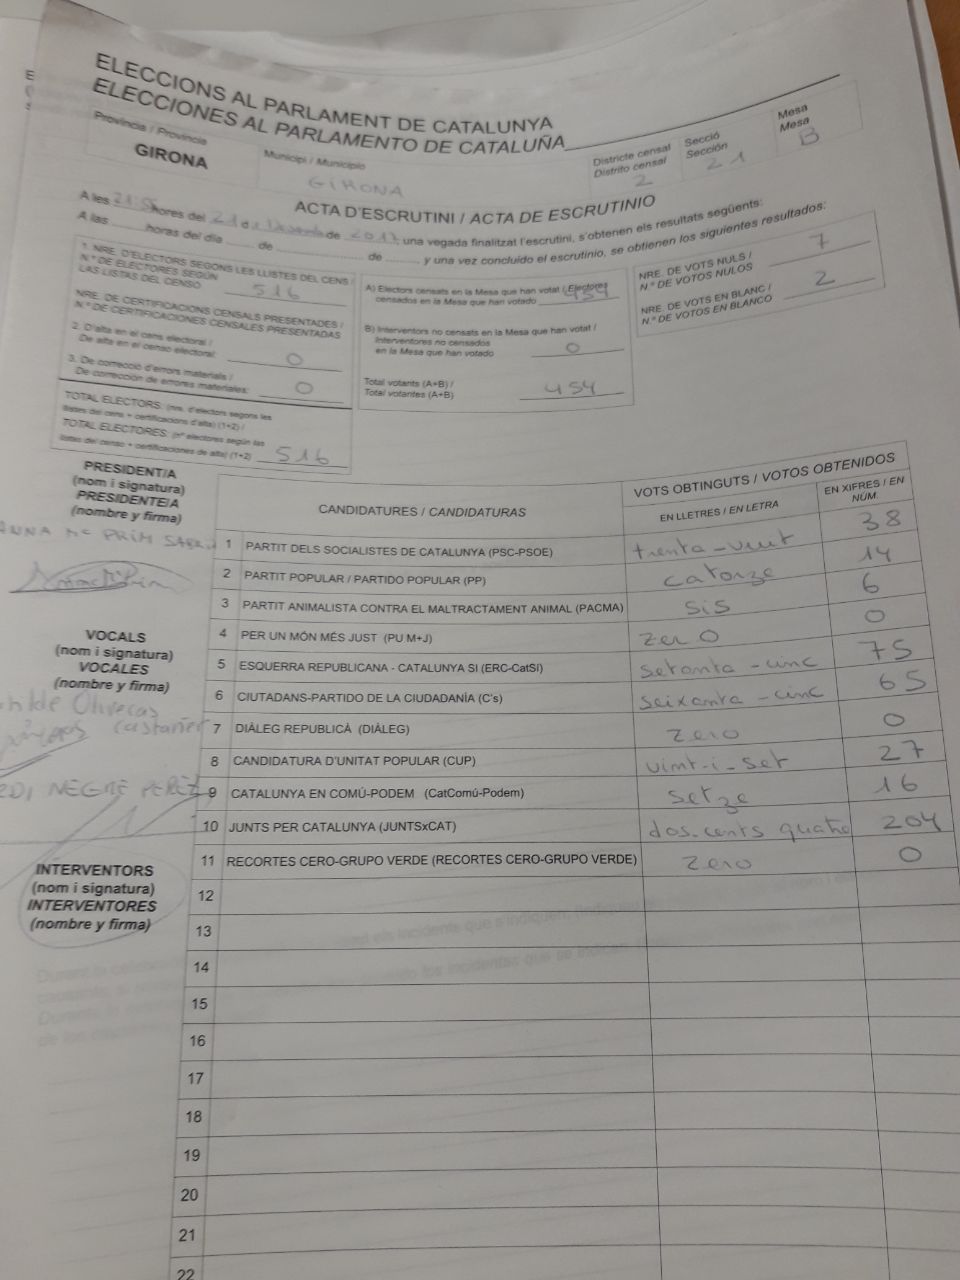 ELECCIONS AL PARLAMENT DE CATALUNYA
ELECCIONES AL PARLAMENTO DE CATALUÑA
Província / Provincia
GIRONA
Municipi / Municipio
GIRONA
Districte censal
Distrito censal
2
Secció
Sección
21
Mesa
Mesa
B
ACTA D'ESCRUTINI / ACTA DE ESCRUTINIO
A les hores del 21 d de 2017 una vegada finalitzat l'escrutini, s'obtenen els resultats següents:
A las horas del día de de y una vez concluido el escrutinio, se obtienen los siguientes resultados:
1. NRE. D'ELECTORS SEGONS LES LLISTES DEL CENS /
N.º DE ELECTORES SEGÚN
LAS LISTAS DEL CENSO 516
NRE. DE CERTIFICACIONS CENSALS PRESENTADES /
N.º DE CERTIFICACIONES CENSALES PRESENTADAS
2. D'alta en el cens electoral /
De alta en el censo electoral: 0
3. De correcció d'errors materials /
De corrección de errores materiales: 0
TOTAL ELECTORS: (nre. d'electors segons les
llistes del cens + certificacions d'alta) (1+2) /
TOTAL ELECTORES: (nº electores según las
listas del censo + certificaciones de alta) (1+2) 516
A) Electors censats en la Mesa que han votat / Electores
censados en la Mesa que han votado 454
B) Interventors no censats en la Mesa que han votat /
Interventores no censados
en la Mesa que han votado 0
Total votants (A+B) /
Total votantes (A+B) 454
NRE. DE VOTS NULS /
N.º DE VOTOS NULOS 7
NRE. DE VOTS EN BLANC /
N.º DE VOTOS EN BLANCO 2
PRESIDENT/A
(nom i signatura)
PRESIDENTE/A
(nombre y firma)
ANNA Mª PRIM
VOCALS
(nom i signatura)
VOCALES
(nombre y firma)
Oliveras
Castañer
NEGRE PEREZ
INTERVENTORS
(nom i signatura)
INTERVENTORES
(nombre y firma)
CANDIDATURES / CANDIDATURAS
VOTS OBTINGUTS / VOTOS OBTENIDOS
EN LLETRES / EN LETRA
EN XIFRES / EN NÚM.
1 PARTIT DELS SOCIALISTES DE CATALUNYA (PSC-PSOE) trenta-vuit 38
2 PARTIT POPULAR / PARTIDO POPULAR (PP) catorze 14
3 PARTIT ANIMALISTA CONTRA EL MALTRACTAMENT ANIMAL (PACMA) sis 6
4 PER UN MÓN MÉS JUST (PU M+J) zero 0
5 ESQUERRA REPUBLICANA - CATALUNYA SI (ERC-CatSí) setanta-cinc 75
6 CIUTADANS-PARTIDO DE LA CIUDADANÍA (C's) seixanta-cinc 65
7 DIÀLEG REPUBLICÀ (DIÀLEG) zero 0
8 CANDIDATURA D'UNITAT POPULAR (CUP) vint-i-set 27
9 CATALUNYA EN COMÚ-PODEM (CatComú-Podem) setze 16
10 JUNTS PER CATALUNYA (JUNTSxCAT) dos-cents quatre 204
11 RECORTES CERO-GRUPO VERDE (RECORTES CERO-GRUPO VERDE) zero 0
12
13
14
15
16
17
18
19
20
21
22